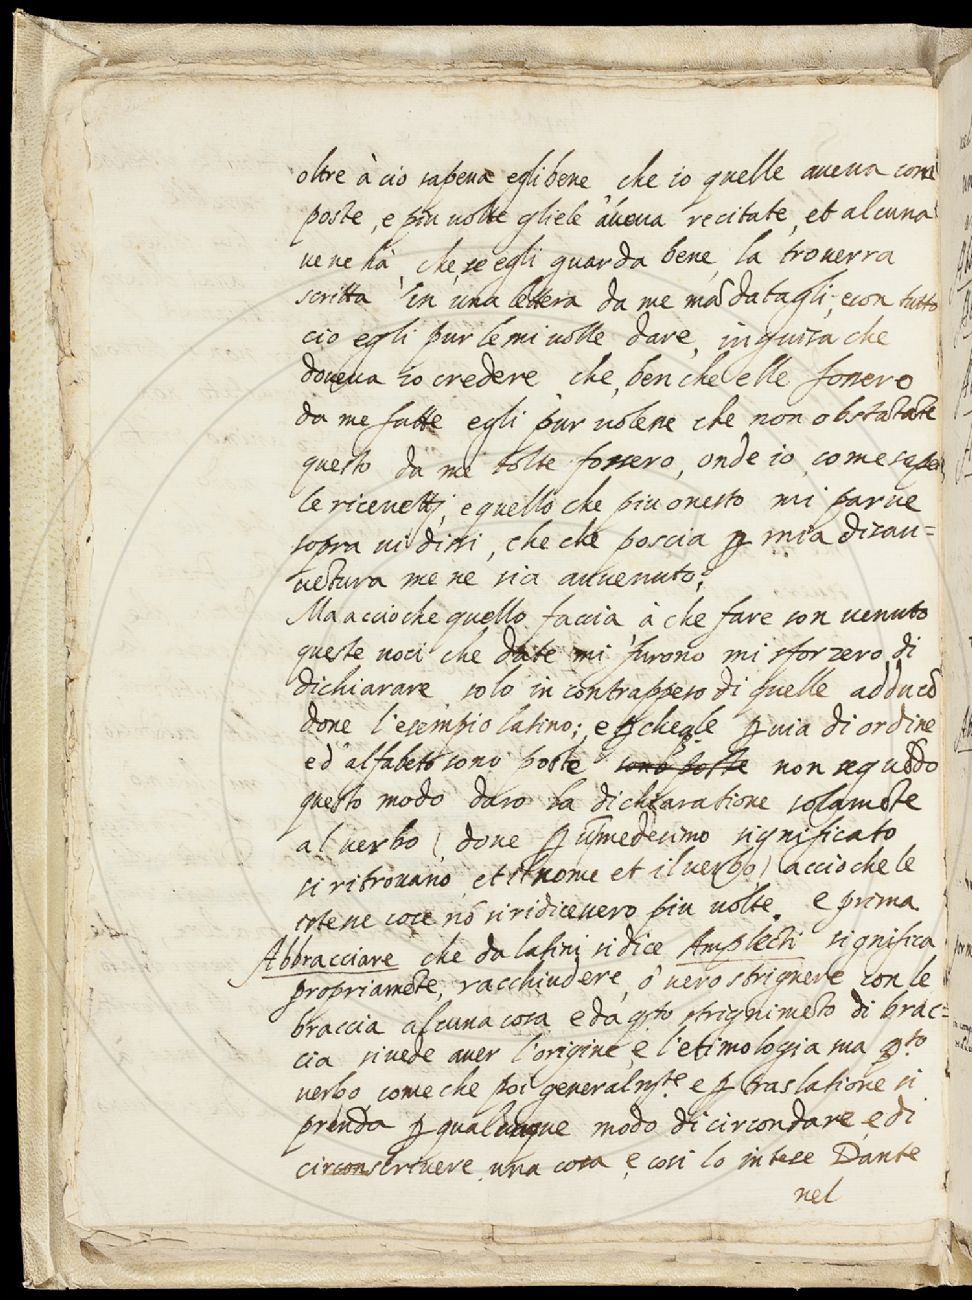 oltre à cio sapeua egli bene, che io quelle aueua com
poste, e piu uolte gliele aueua recitate, et alcuna
ue ne hà, che, se egli guarda bene, la trouerra
scritta in una lettera da me mãdatagli; e con tutto
cio egli pur le mi uolle dare, in guisa che
doueua io credere che, ben che elle fossero
da me fatte egli pur uolesse che non obstãtãte
questo da me tolte fossero, onde io, come sapete
le riceuetti, e quello che piu onesto mi parue
sopra ui dissi, che che poscia ꝑ mia disau=
uẽtura me ne sia auuenuto;
Ma accioche quello faccia à che fare son uenuto
queste uoci che date mi furono mi sforzero, di
dichiarare solo in contrappeso di quelle adducẽ
done l'esempio latino; e ꝑche
ꝑ uia di ordine
ed alfabeto sono poste sono poste non seguẽdo
questo modo daro la dichiaratione solamẽte
al uerbo (doue ꝑ un medesimo significato
si ritrouano, et il nome et il uerbo) accioche le
cose nõ si ridicessero piu uolte. e prima
Abbracciare che da latini si dice Amplecti significa
propriamẽte, racchiudere, ò uero strignere con le
braccia alcuna cosa e da q.to strignimẽto di brac=
cia si uede auer l'origine, e l'etimologia ma q.sto
uerbo come che poi generalm.te e ꝑ traslatione si
prenda ꝑ qualunque modo di circondare, e di
circonscriuere una cosa e cosi lo intese Dante
nel